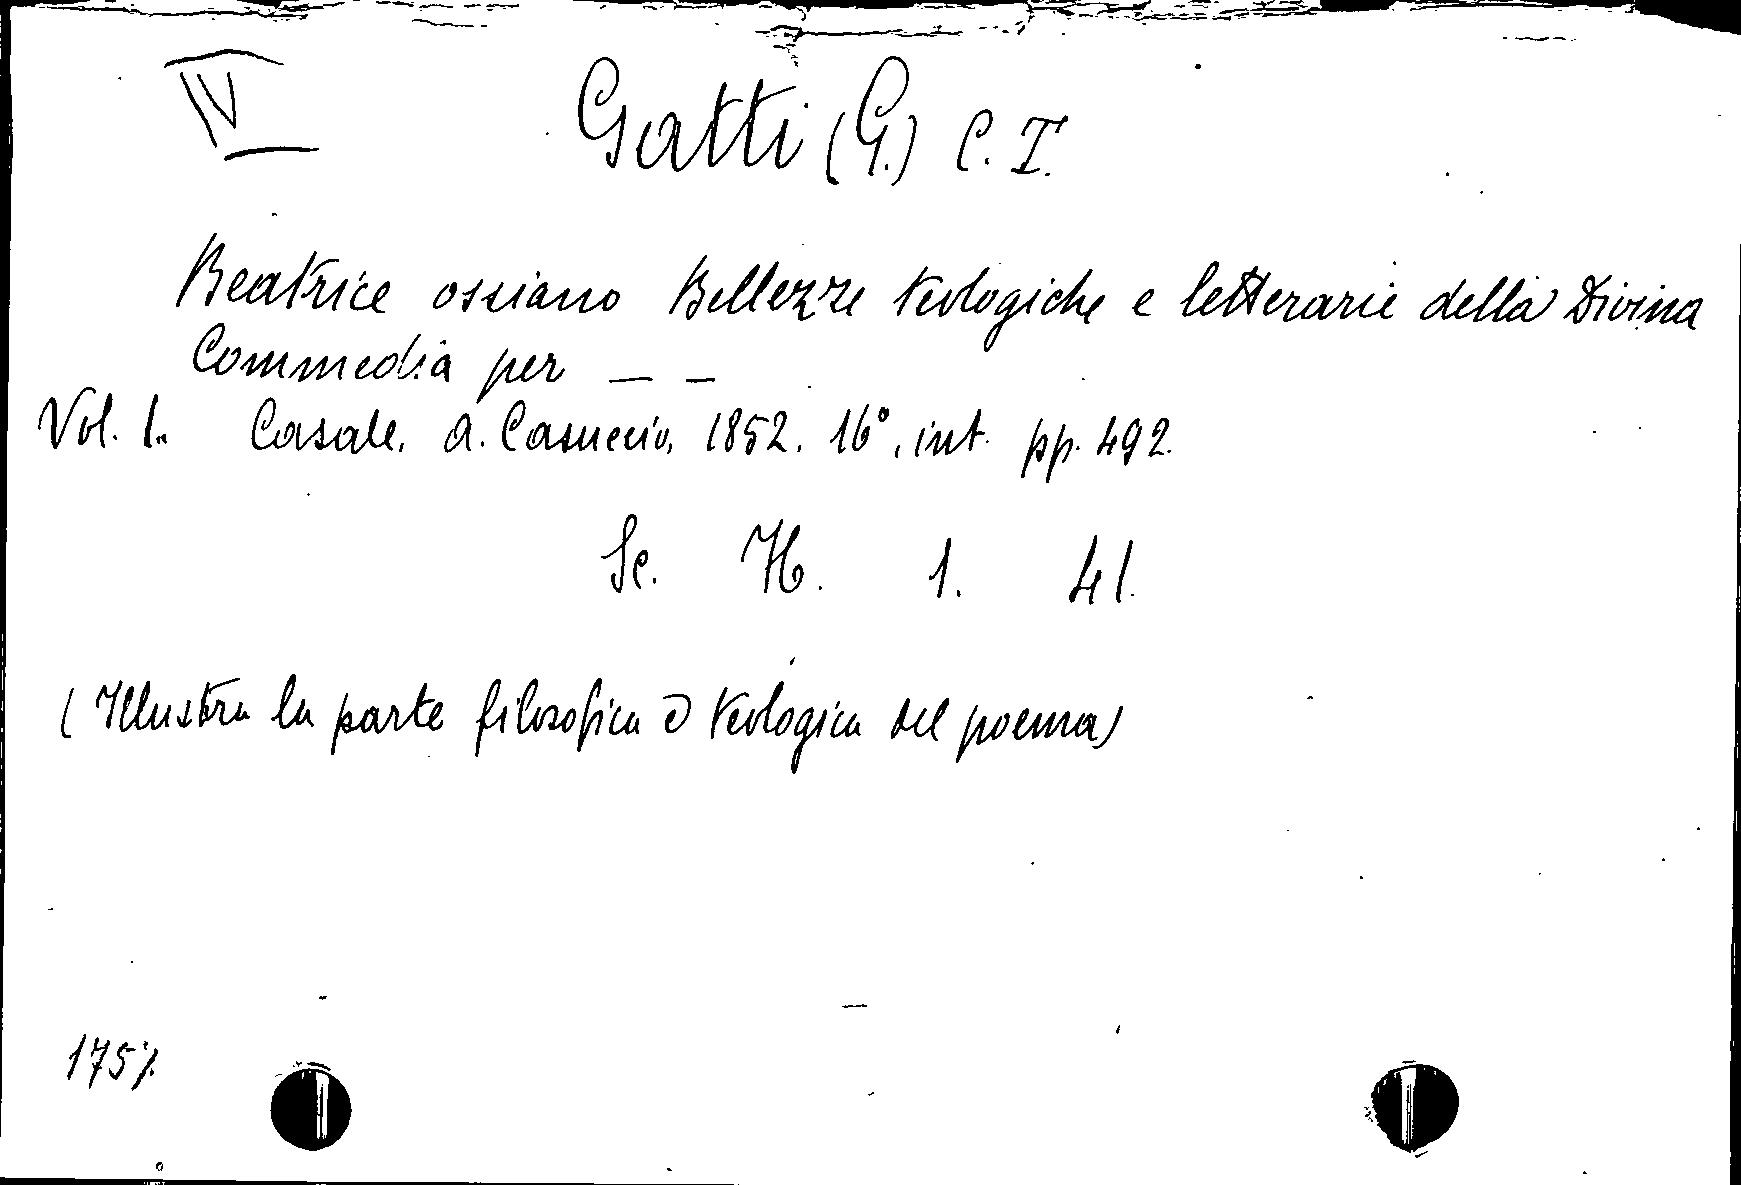 IV
Gatti (G.) C. T.
Beatrice ossiano Bellezze teologiche e letterarie della Divina
Commedia per — —
Vol. I. Casale. A. Casuccio, 1852. 16°, int. pp. 492.
Sc. H. 1. 41.
(Illustra la parte filosofica e teologica del poema)
175%